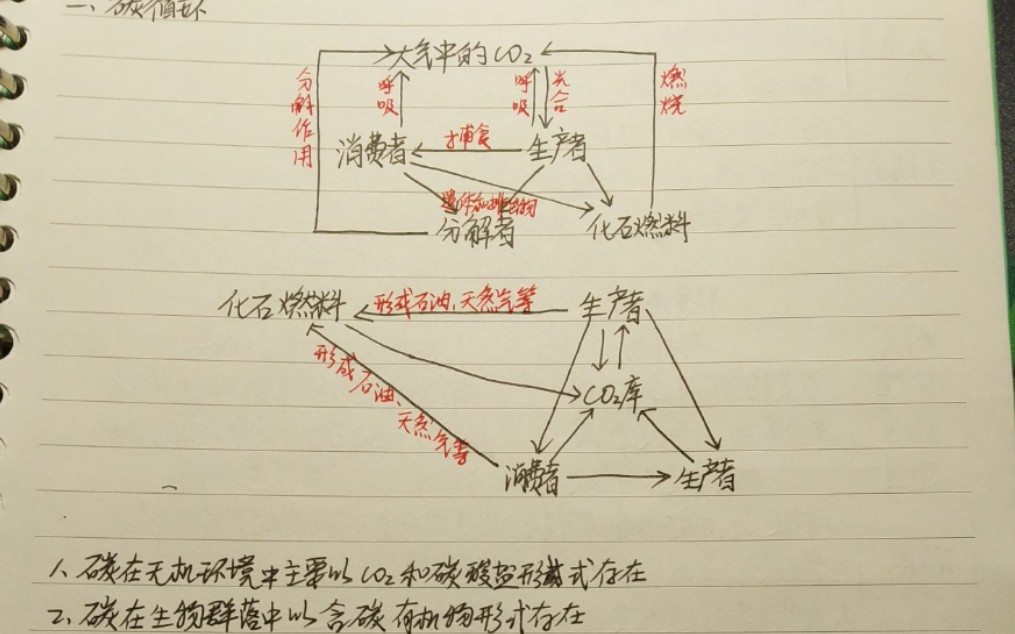 一、碳循环
大气中的CO2
分解作用
呼吸
呼吸
光合
燃烧
消费者
捕食
生产者
遗体和排出物
分解者
化石燃料
化石燃料
形成石油、天然气等
生产者
CO2库
形成石油、天然气等
消费者
生产者
1、碳在无机环境中主要以CO2和碳酸盐形式存在
2、碳在生物群落中以含碳有机物形式存在